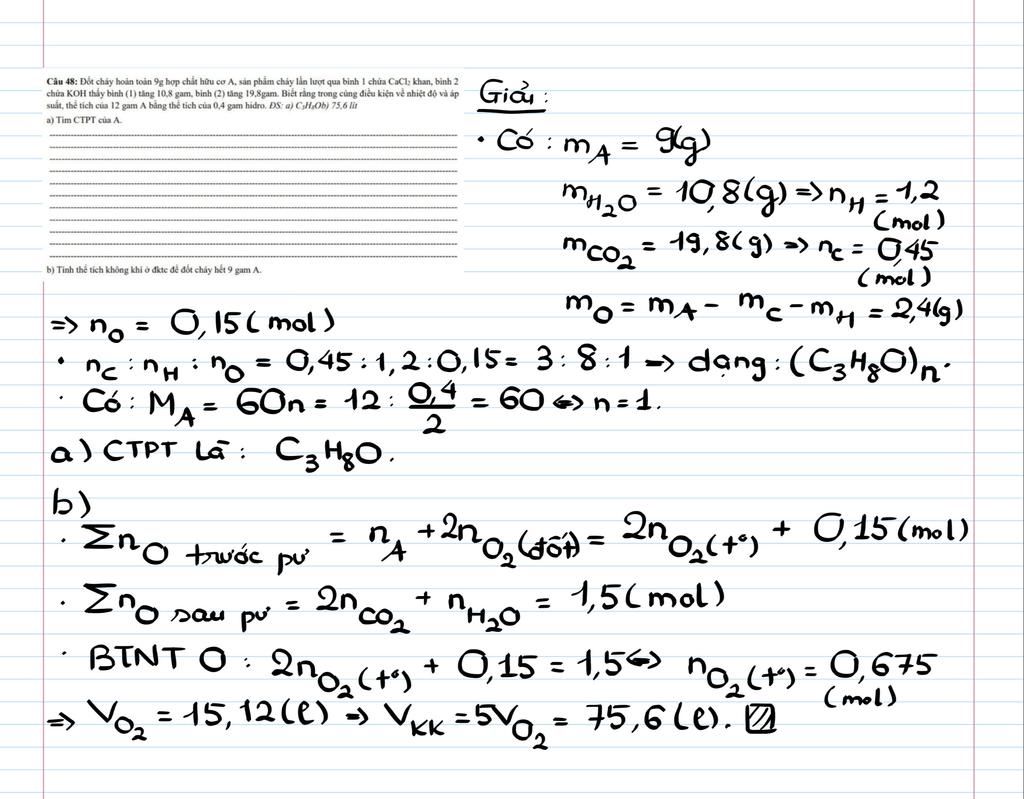 Câu 48: Đốt cháy hoàn toàn 9g hợp chất hữu cơ A, sản phẩm cháy lần lượt qua bình 1 chứa CaCl₂ khan, bình 2
chứa KOH thấy bình (1) tăng 10,8 gam, bình (2) tăng 19,8gam. Biết rằng trong cùng điều kiện về nhiệt độ và áp
suất, thể tích của 12 gam A bằng thể tích của 0,4 gam hidro. ĐS: a) C₃H₈Ob) 75,6 lít
a) Tìm CTPT của A.
b) Tính thể tích không khí ở đktc để đốt cháy hết 9 gam A.
Giải:
• Có: m_A = 9(g)
m_H₂O = 10,8(g) => n_H = 1,2
(mol)
m_CO₂ = 19,8(g) => n_C = 0,45
(mol)
m_O = m_A - m_C - m_H = 2,4(g)
=> n_O = 0,15(mol)
• n_C : n_H : n_O = 0,45 : 1,2 : 0,15 = 3 : 8 : 1 => dạng: (C₃H₈O)n.
• Có: M_A = 60n = 12 : 0,4/2 = 60 <=> n = 1.
a) CTPT là: C₃H₈O.
b)
• Σn_O trước pư = n_A + 2n_O₂(đốt) = 2n_O₂(t°) + 0,15(mol)
• Σn_O sau pư = 2n_CO₂ + n_H₂O = 1,5(mol)
• BTNT O: 2n_O₂(t°) + 0,15 = 1,5 <=> n_O₂(t°) = 0,675
(mol)
=> V_O₂ = 15,12(l) => V_KK = 5V_O₂ = 75,6(l).